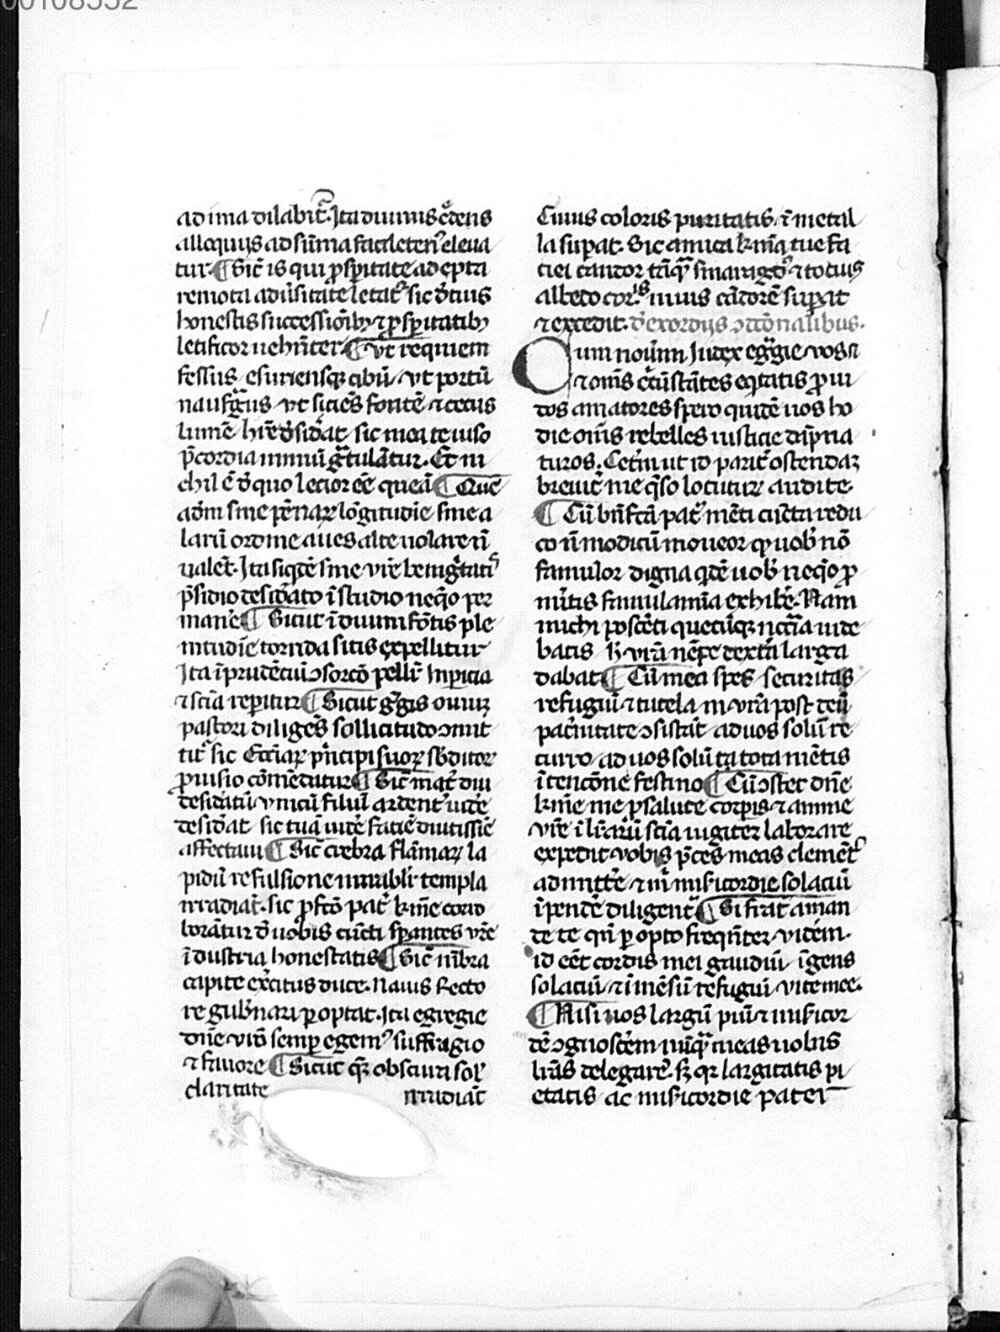 00108552
ad ima dilabit̃. Ita diuinis c̃dens
alloquijs ad sũma facilet̃ eleua
tur. ¶ Sic̃ is qui ꝓsꝑitate adepta
remota adũsitate letat᷑ sic
honestis successiõibꝫ ⁊ ꝓsꝑitatibꝫ
letificor uehñter ¶ Vt requiem
fessus esuriensqꝫ cibũ vt portũ
naufᷓgus vt siciẽs fontẽ ⁊ cecus
lumẽ hr̃e dꝰsid̃at sic mea te uiso
p̃cordia nimiũ gᷓtulãtur. Et ni
chil ẽ d̃ quo lecior eẽ queã ¶ Quẽ
adm̃ sine pẽnaꝝ lõgitudĩe sine a
larũ ordine aues alte uolare ñ
ualẽt. Ita siqdẽ sine vr̃e benigᷓtatis
p̃sidio desid̃ato ĩ studio neqͦo per
manẽ ¶ Sicut ĩ diuum fõtis ple
nitudĩe torrida sitis expellitur
Ita ĩprudẽciũ ɔsorcõ pellit᷑ Inꝑicia
⁊ scĩa reꝑitur ¶ Sicut gᷓgis ouiuꝫ
pastori diligẽs sollicitudo ɔmit
tit᷑ sic Ecc̃iaꝝ p̃ncipi suoꝝ sb̃ditoꝝ
ꝓuisio cõmẽdatur ¶ Sic̃ mat̃ diu
desid̃atũ vnicũ filiũ ardent᷑ uid̃e
desid̃at sic tuã uid̃e faciẽ diutissiẽ
affectaui ¶ Sic crebra flãmaꝝ la
pidũ refulsione mirabilr̃ templa
irradiãt. sic ꝓfc̃õ pat̃ kr̃ıe corro
borãtur d̃ uobis cũcti sꝑantes vr̃e
ĩdustria honestatis ¶ Sic̃ mẽbra
capite exc̃itus duce. Nauis Recto
re gub̃nari ꝑoptat. Ita egregie
dñe v̾o semꝑ egemꝰ suffragio
⁊ fauore ¶ Sicut qͣ obscura sol᷑
claritate irradiãt
Ciuius coloris puritatis. ĩ metal
la suꝑat. Sic amica kr̃ıqꝫ tue fa
ciei candor tãqͣ smaragdꝰ ⁊ totius
albedo corꝑis niuis cãdorẽ suꝑat
⁊ excedit. d̃ exordijs ɔcõnalibus.
Cum nouerim Iudex egᷓgie vos ⁊
⁊ om̃s c̃cũstãtes eqͥtatis ꝓui
dos amatores spero quidẽ uos ho
die om̃s rebelles iusticie dãpna
turos. Cet̃m ut id parit̃ ostendaꝫ
breuit̃ me qͦso locuturꝫ audite.
¶ Cũ bñfc̃a pat᷑ mẽti cũcta redu
co ñ modicũ moueor qꝫ uob̾ nõ
famulor digna qͥdẽ uob̾ neqͦo ꝓ
mẽtis famulamĩa exhibẽ. Nam
michi poscẽti quecũqꝫ nccĩa uide
batis h̾ vr̃a nẽpe dextẽa larga
dabat ¶ Cũ mea spes securitas
refugiũ ⁊ tutela in vr̃a post deũ
pat̃nitate ɔsistat ad uos solũ re
curro ad uos solũ ta tota mẽtis
ĩtencõne festino ¶ Cũ ɔstet dñe
kr̃ıe me ꝓ salute corꝑis ⁊ anime
vr̃e ĩ lr̃arũ scĩa iugiter laborare
expedit vobis p̃ces meas clemẽt᷑
admitt̃e ⁊ m̾ misͥicordie solaciũ
ĩpendẽ diligent᷑ ¶ Si frat̃ aman
de te qm̃ ꝑopto freqñter videm.
id eẽt cordis mei gaudiũ ĩgens
solaciũ ⁊ ĩmẽsũ refugiũ vite mee.
¶ Nisi uos largũ piũ ⁊ misͥicor
dẽ ɔgnoscẽm nũqͣ meas uobis
lr̃as delegarẽ. sꝫ qꝛ largitatis pi
etatis ac misͥicordie patet